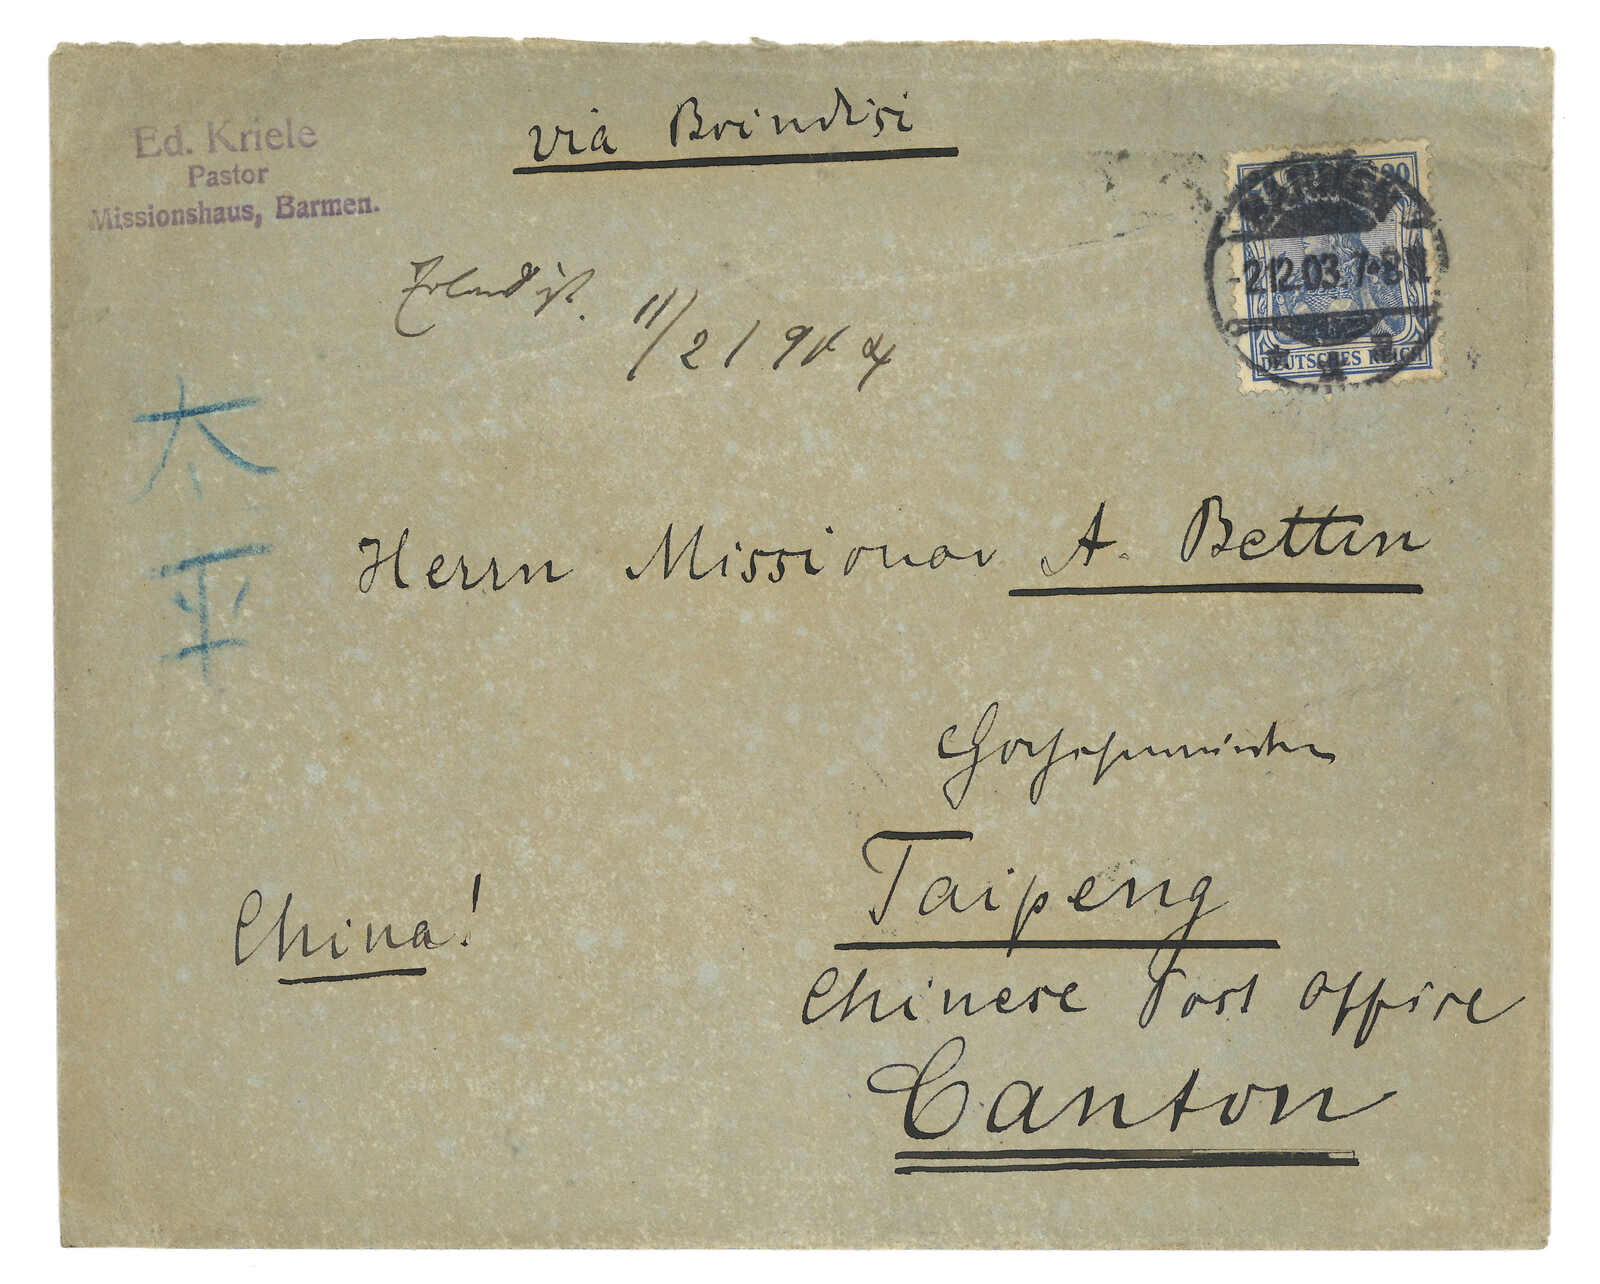 Ed. Kriele
Pastor
Missionshaus, Barmen.
via Brindisi
20
BARMEN
-2.12.03.7-8N
DEUTSCHES REICH
11/2 1904
太
平
Herrn Missionar A. Bettin
Hochehrwürden
Taipeng
China!
Chinese Post Office
Canton